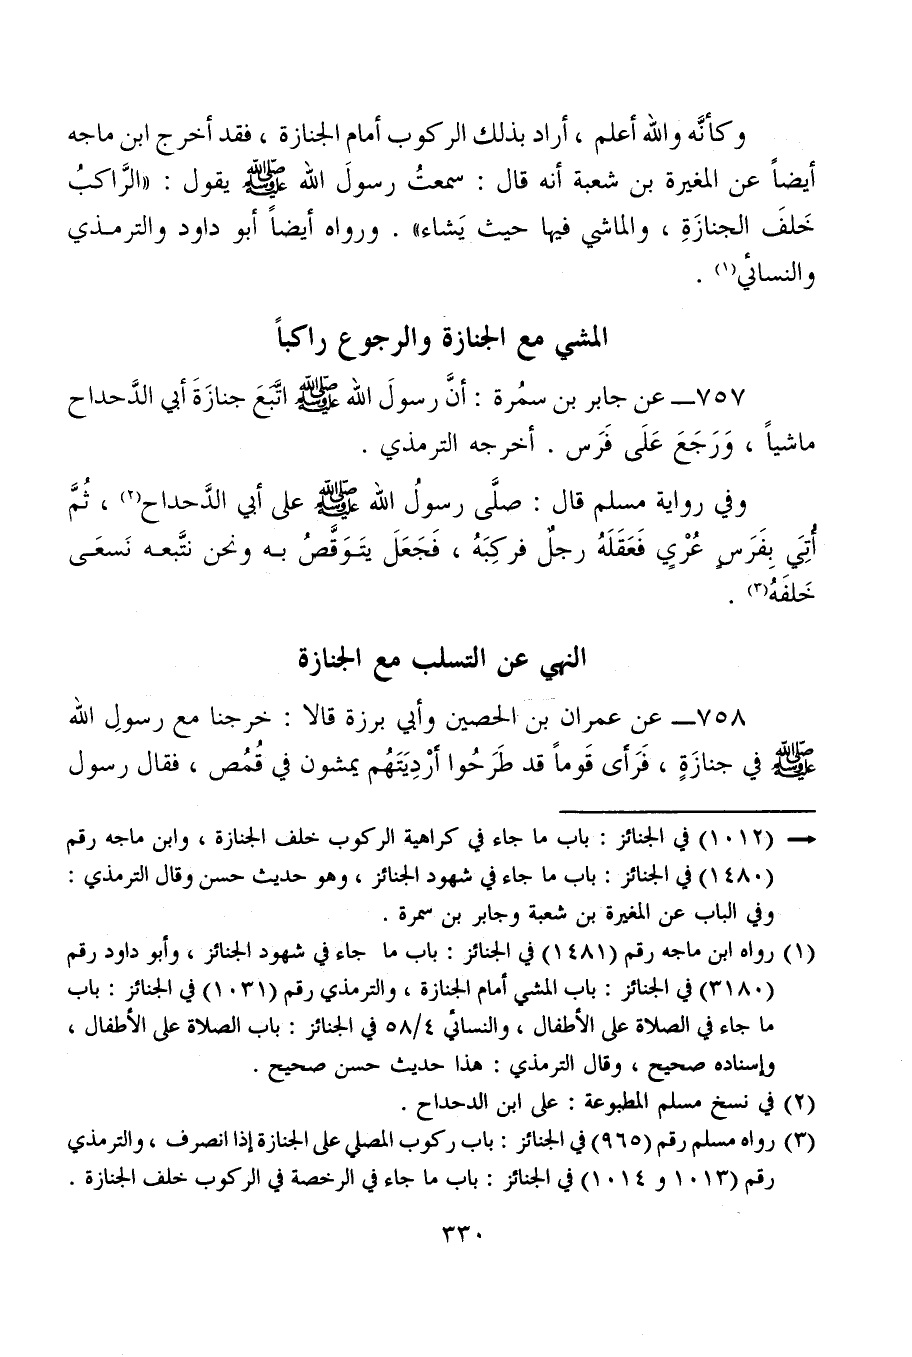 وكأنَّه والله أعلم ، أراد بذلك الركوب أمام الجنازة ، فقد أخرج ابن ماجه
أيضاً عن المغيرة بن شعبة أنه قال : سمعتُ رسولَ الله ﷺ يقول : «الرَّاكبُ
خَلفَ الجنازَةِ ، والماشي فيها حيث يَشاء» . ورواه أيضاً أبو داود والترمـذي
والنسائي(١) .
المشي مع الجنازة والرجوع راكباً
٧٥٧ــ عن جابر بن سمُرة : أنَّ رسولَ الله ﷺ اتَّبَعَ جنازَةَ أبي الدَّحداح
ماشياً ، وَرَجَعَ عَلَى فَرَس . أخرجه الترمذي .
وفي رواية مسلم قال : صلَّى رسولُ الله ﷺ على أبي الدَّحداح(٢) ، ثُمَّ
أُتِيَ بِفَرَسٍ عُرْيٍ فَعَقَلَهُ رجلٌ فركبَهُ ، فَجَعَلَ يتَوَقَّصُ بـه ونحن نتَّبعـه نَسعَـى
خَلفَهُ(٣) .
النهي عن التسلب مع الجنازة
٧٥٨ــ عن عمران بن الحصين وأبي برزة قالا : خرجنا مع رسولِ الله
ﷺ في جنازَةٍ ، فَرَأى قَوماً قد طَرَحُوا أرْدِيَتَهُم يمشون في قُمُص ، فقال رسول
← (١٠١٢) في الجنائز : باب ما جاء في كراهية الركوب خلف الجنازة ، وابن ماجه رقم
(١٤٨٠) في الجنائز : باب ما جاء في شهود الجنائز ، وهو حديث حسن وقال الترمذي :
وفي الباب عن المغيرة بن شعبة وجابر بن سمرة .
(١) رواه ابن ماجه رقم (١٤٨١) في الجنائز : باب ما جاء في شهود الجنائز ، وأبو داود رقم
(٣١٨٠) في الجنائز : باب المشي أمام الجنازة ، والترمذي رقم (١٠٣١) في الجنائز : باب
ما جاء في الصلاة على الأطفال ، والنسائي ٥٨/٤ في الجنائز : باب الصلاة على الأطفال ،
وإسناده صحيح ، وقال الترمذي : هذا حديث حسن صحيح .
(٢) في نسخ مسلم المطبوعة : على ابن الدحداح .
(٣) رواه مسلم رقم (٩٦٥) في الجنائز : باب ركوب المصلي على الجنازة إذا انصرف ، والترمذي
رقم (١٠١٣ و ١٠١٤) في الجنائز : باب ما جاء في الرخصة في الركوب خلف الجنازة .
٣٣٠